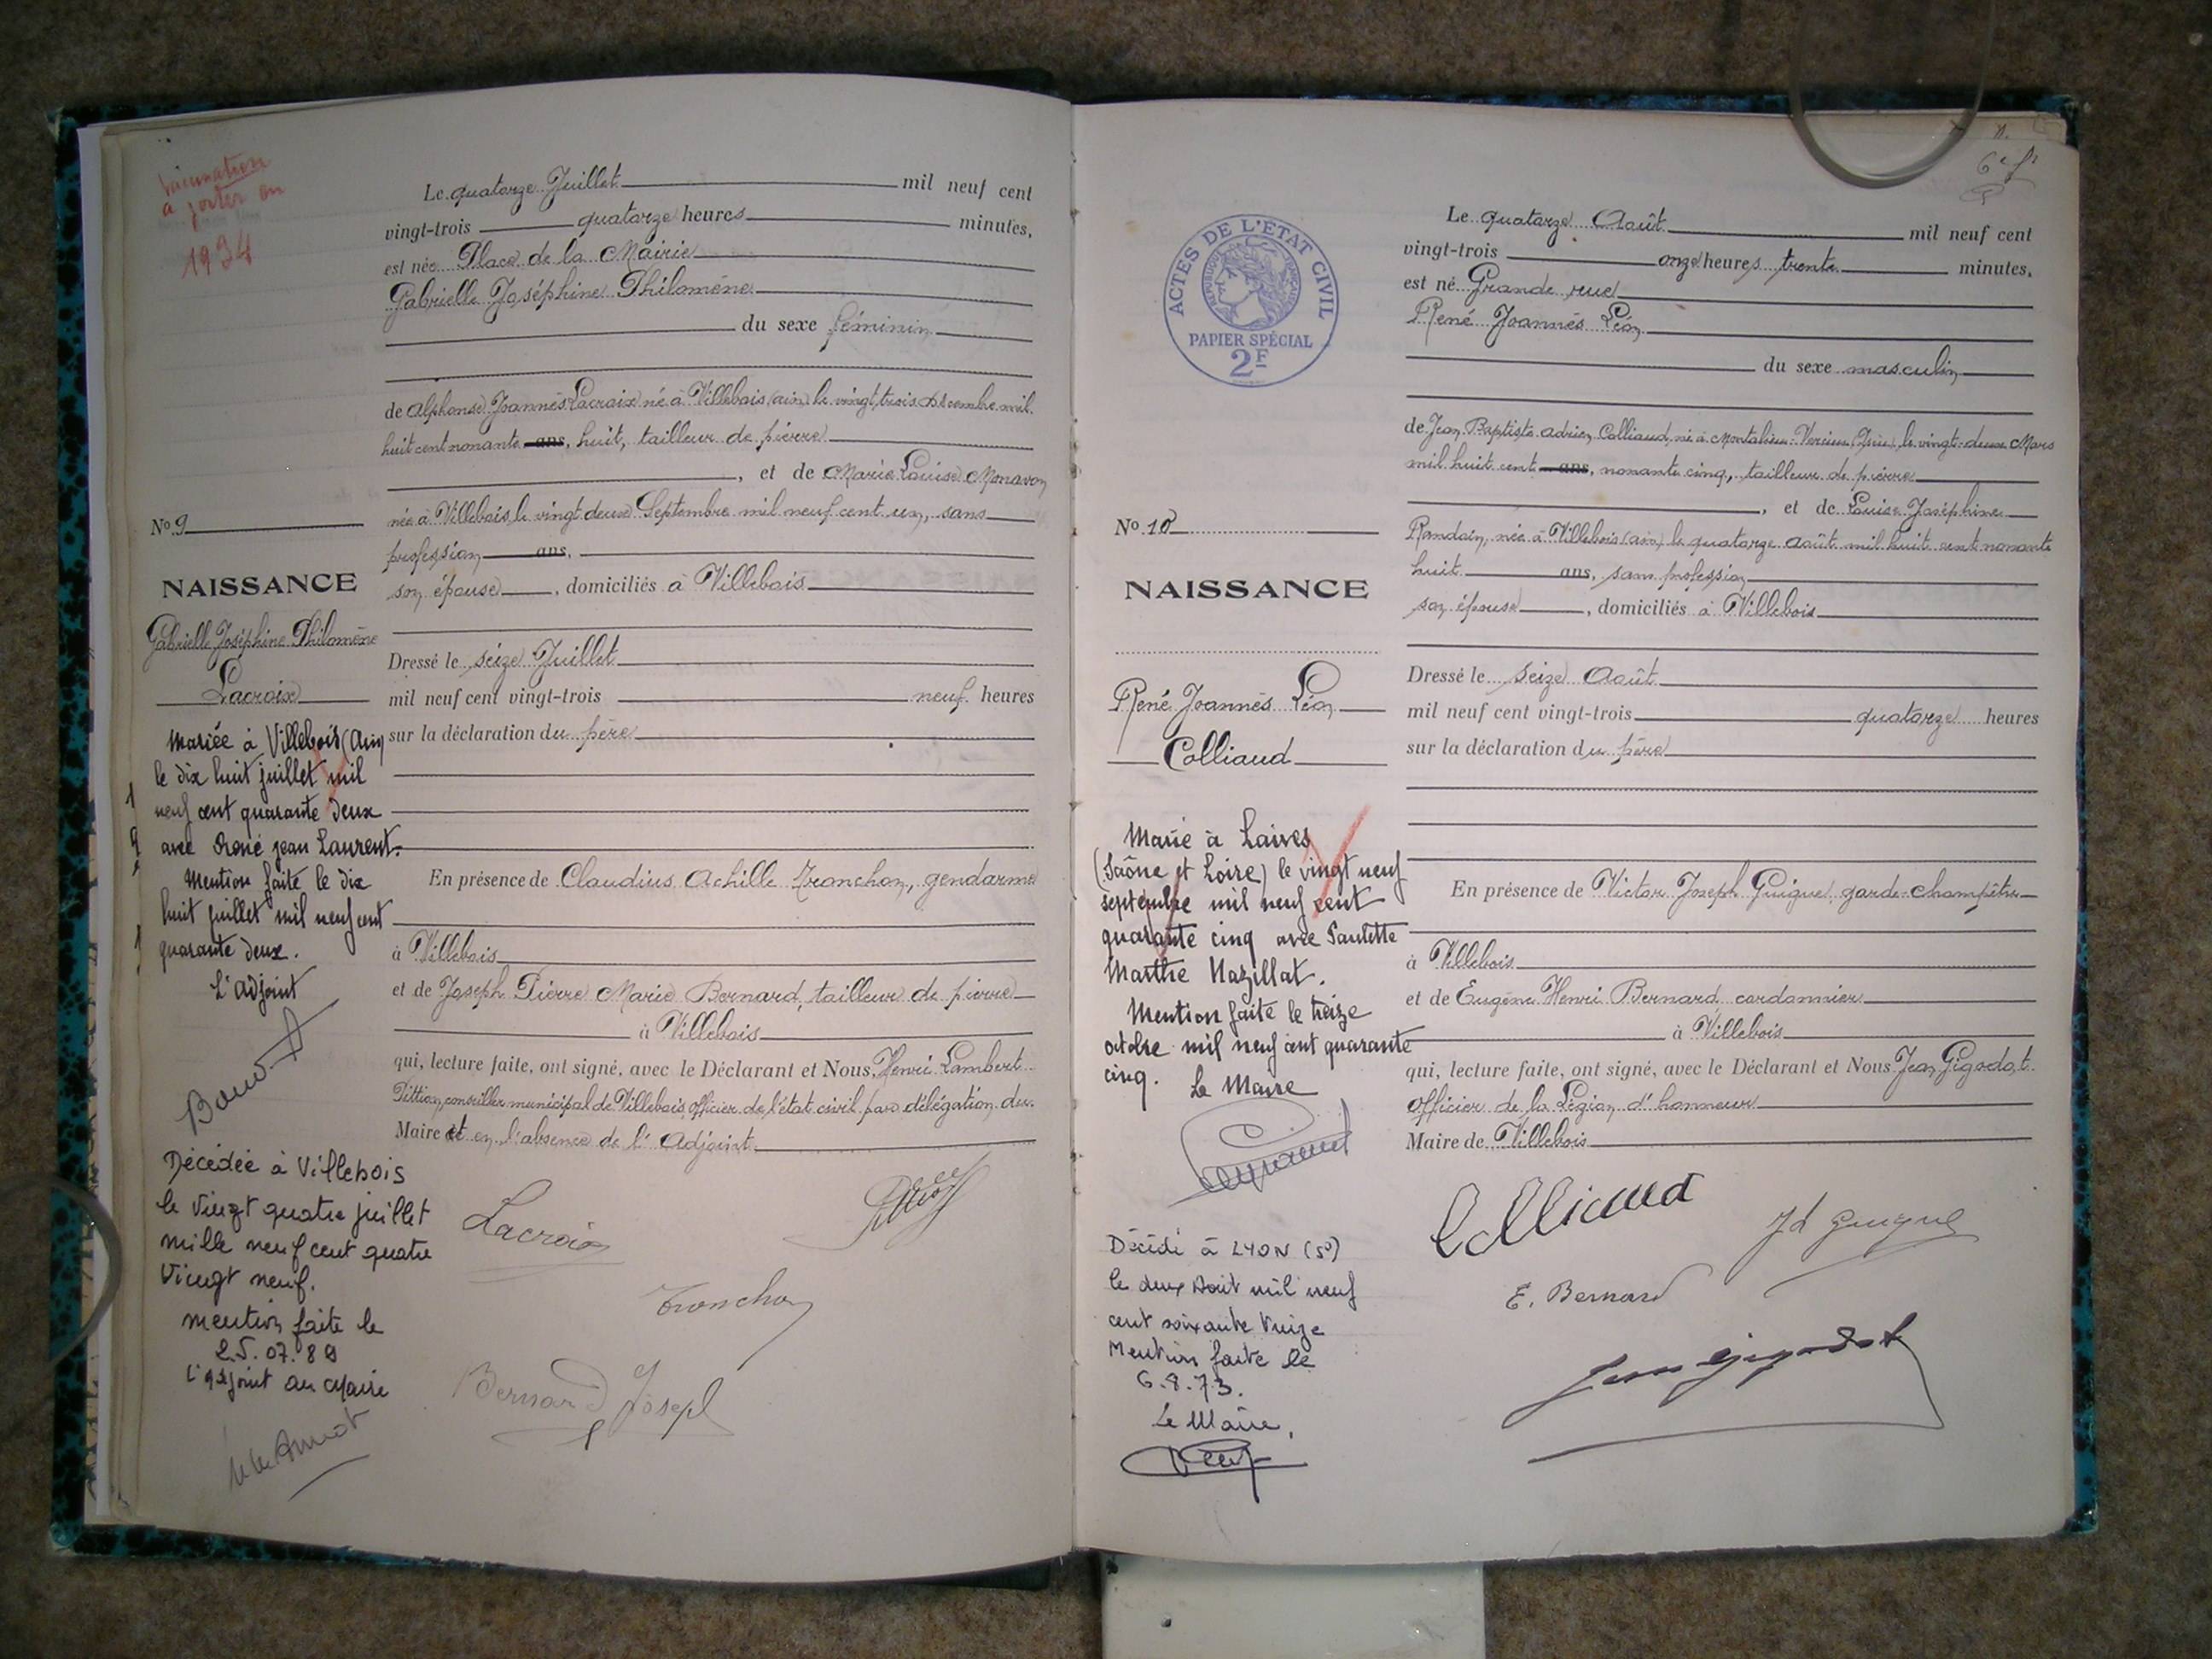 Vaccination
à porter en
1934
Le quatorze Juillet mil neuf cent
vingt-trois quatorze heures minutes,
est née Place de la Mairie
Gabrielle Joséphine Philomène
du sexe féminin
de Alphonse Joannès Lacroix né à Villebois (ain) le vingt trois décembre mil
huit cent nonante ans, huit, tailleur de pierre
, et de Marie Louise Monavon
née à Villebois, le vingt deux Septembre mil neuf cent un, sans
profession ans,
son épouse, domiciliés à Villebois
Dressé le seize Juillet
mil neuf cent vingt-trois neuf heures
sur la déclaration du père
En présence de Claudius Achille Tronchon, gendarme
à Villebois
et de Joseph Pierre Marie Bernard, tailleur de pierre
à Villebois
qui, lecture faite, ont signé, avec le Déclarant et Nous, Henri Lambert
Pittion, conseiller municipal de Villebois, officier de l'état civil par délégation du
Maire et en l'absence de l'Adjoint
Lacroix
Tronchon
Bernard Joseph
No 9
NAISSANCE
Gabrielle Joséphine Philomène
Lacroix
Mariée à Villebois (Ain)
le dix huit juillet mil
neuf cent quarante deux
avec René jean Laurent.
Mention faite le dix
huit juillet mil neuf cent
quarante deux.
L'adjoint
Décédée à Villebois
le Vingt quatre juillet
mille neuf cent quatre
Vingt neuf.
mention faite le
25.07.89
L'adjoint au Maire
6e ft
ACTES DE L'ETAT CIVIL
RÉPUBLIQUE FRANÇAISE
PAPIER SPÉCIAL
2F
Le quatorze Août mil neuf cent
vingt-trois onze heures trente minutes,
est né Grande rue
René Joannès Léon
du sexe masculin
de Jean Baptiste Adrien Colliaud, né à Montalieu-Vercieu (Isère) le vingt-deux Mars
mil huit cent ans, nonante cinq, tailleur de pierre
, et de Louise Joséphine
Randoin, née à Villebois (ain) le quatorze août mil huit cent nonante
huit ans, sans profession
son épouse, domiciliés à Villebois
Dressé le seize Août
mil neuf cent vingt-trois quatorze heures
sur la déclaration du père
En présence de Victor Joseph Guigue, garde-champêtre
à Villebois
et de Eugène Henri Bernard cordonnier
à Villebois
qui, lecture faite, ont signé, avec le Déclarant et Nous Jean Gigodot
officier de la Légion d'honneur
Maire de Villebois
Colliaud
Jd Guigue
E. Bernard
Jean Gigodot
No 10
NAISSANCE
René Joannès Léon
Colliaud
Marié à Laives
(Saône et Loire) le vingt neuf
septembre mil neuf cent
quarante cinq avec Paulette
Marthe Nazillat.
Mention faite le treize
octobre mil neuf cent quarante
cinq. Le Maire
Décédé à LYON (5e)
le deux Août mil neuf
cent soixante treize
Mention faite le
6.8.73.
Le Maire,